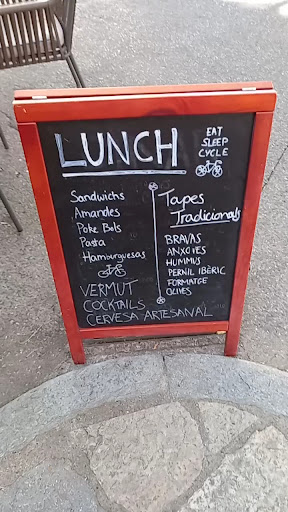 LUNCH
EAT
SLEEP
CYCLE
Sandwichs
Amandes
Poke Bols
Pasta
Hamburguesas
Tapes
Tradicionals
BRAVAS
ANXOVES
HUMMUS
PERNIL IBÈRIC
FORMATGE
OLIVES
VERMUT
COCKTAILS
CERVESA ARTESANAL